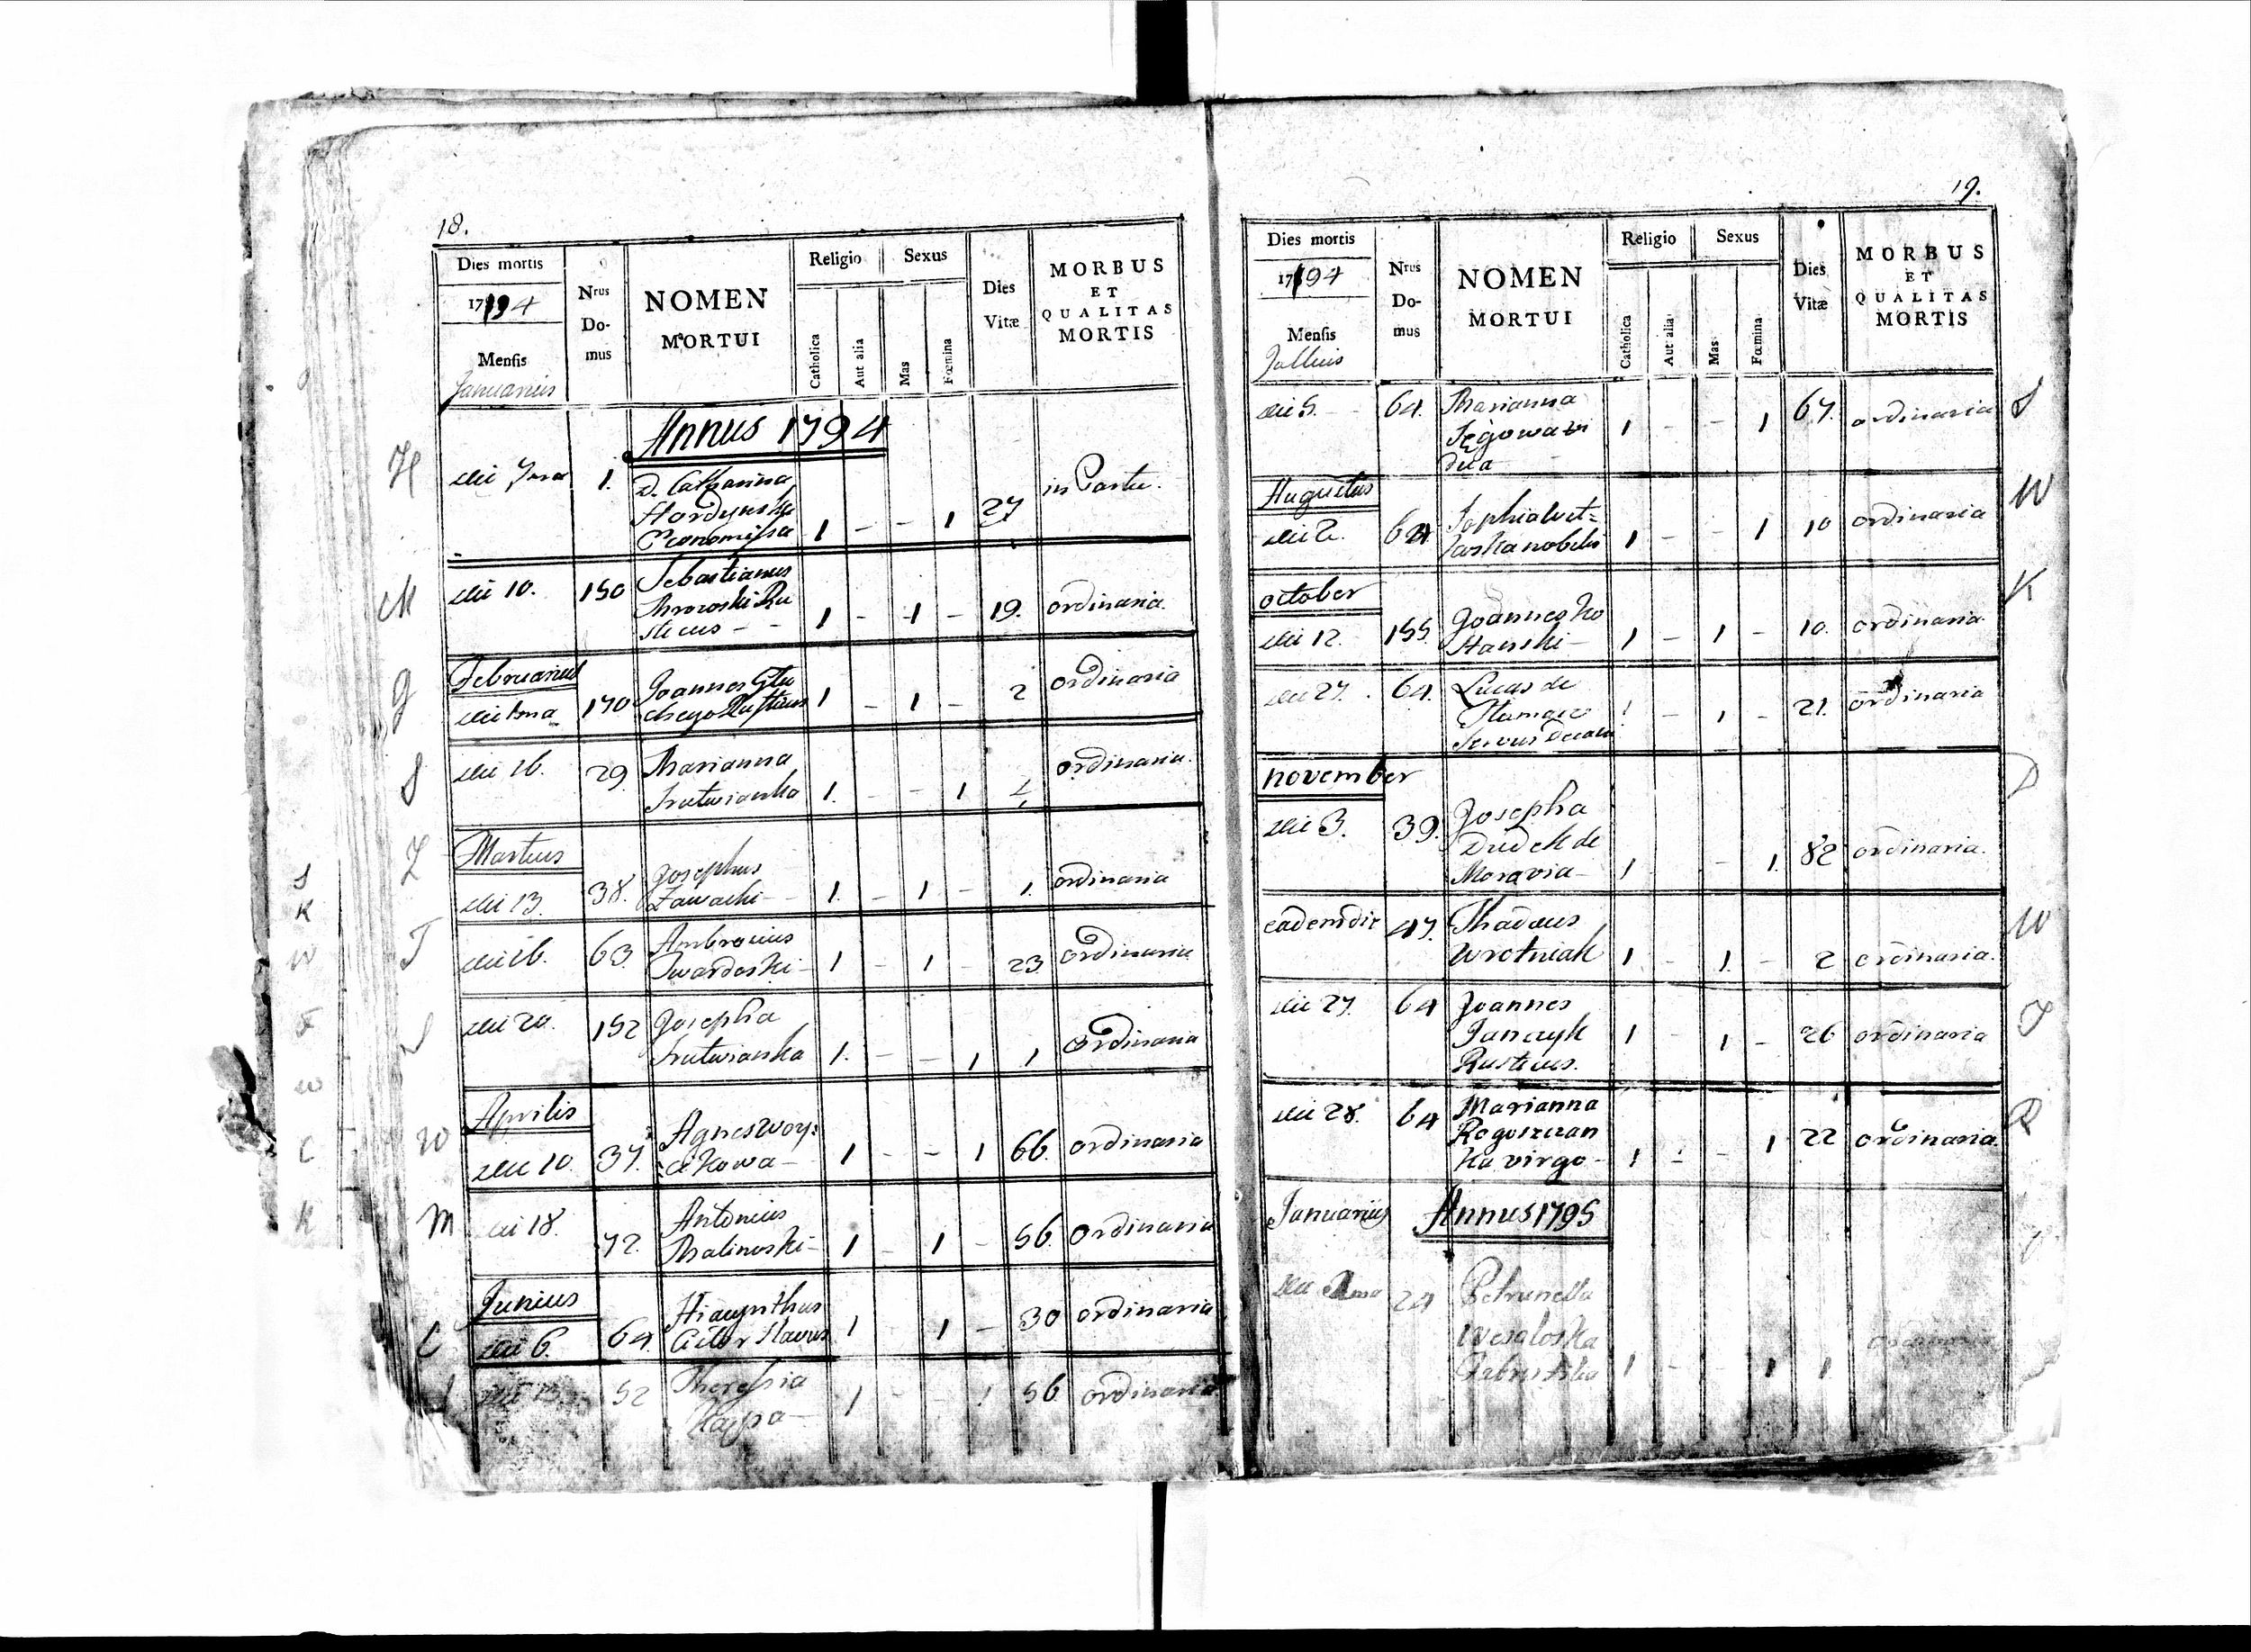 18.
Dies mortis
1794
Mensis
Januarius
Nrus Do-mus
NOMEN
MORTUI
Religio
Catholica
Aut alia
Sexus
Mas
Fœmina
Dies
Vitæ
MORBUS
ET
QUALITAS
MORTIS
Annus 1794
H
die 1. D. Catharina
Hordynska
1 - - 1 27 in Partu.
M
die 10. 150 Sebastianus
Ru
sticus - - 1 - 1 - 19. ordinaria.
G
Februarius
170 Joannes Glu
chego Rusticus 1 - 1 - 2 ordinaria
S
die 16. 29. Marianna
1. - - 1 ordinaria.
Z
Martius
die 13. 38. Josephus
Zawacki - 1. - 1 - 1. ordinaria
T
die 16. 63. Ambrosius
Twardoski - 1 - 1 - 23 ordinaria
S
die 20. 152 Josepha
1. - - 1 1 ordinaria
W
Aprilis
die 10. 37. Agnes Woy:
cikowa - 1 - - 1 66. ordinaria
M
die 18. 72. Antonius
Malinoski - 1 - 1 - 56. ordinaria
C
Junius
die 6. 64. Hiacynthus
1 - 1 - 30 ordinaria
52 Theressia
1 - - 1 56 ordinaria
S
K
W
W
C
K
19.
Dies mortis
1794
Mensis
Jullius
Nrus Do-mus
NOMEN
MORTUI
Religio
Catholica
Aut alia
Sexus
Mas
Fœmina
Dies
Vitæ
MORBUS
ET
QUALITAS
MORTIS
die 5. 64. Marianna
vi
dua 1 - - 1 67. ordinaria
S
Augustus
die 2. 64. Sophia
nobilis 1 - - 1 10 ordinaria
W
October
die 12. 155. Joannes Ko
1 - 1 - 10. ordinaria.
K
die 27. 64. Lucas de
1 - 1 - 21. ordinaria
november
die 3. 39. Josepha
Dudek de
Moravia - 1 - 1. 82 ordinaria.
D
eadem die 47. Thadaus
Wrotniak 1 - 1. - 2 ordinaria.
W
die 27. 64 Joannes
Janczyk
Rusticus. 1 - 1 - 26 ordinaria
J
die 28. 64 Marianna
Rogoszczan
ka virgo - 1 - - 1 22 ordinaria.
R
Januarius Annus 1795
24 Petrunella
Wesoloska
1 - - 1 1 ordinaria